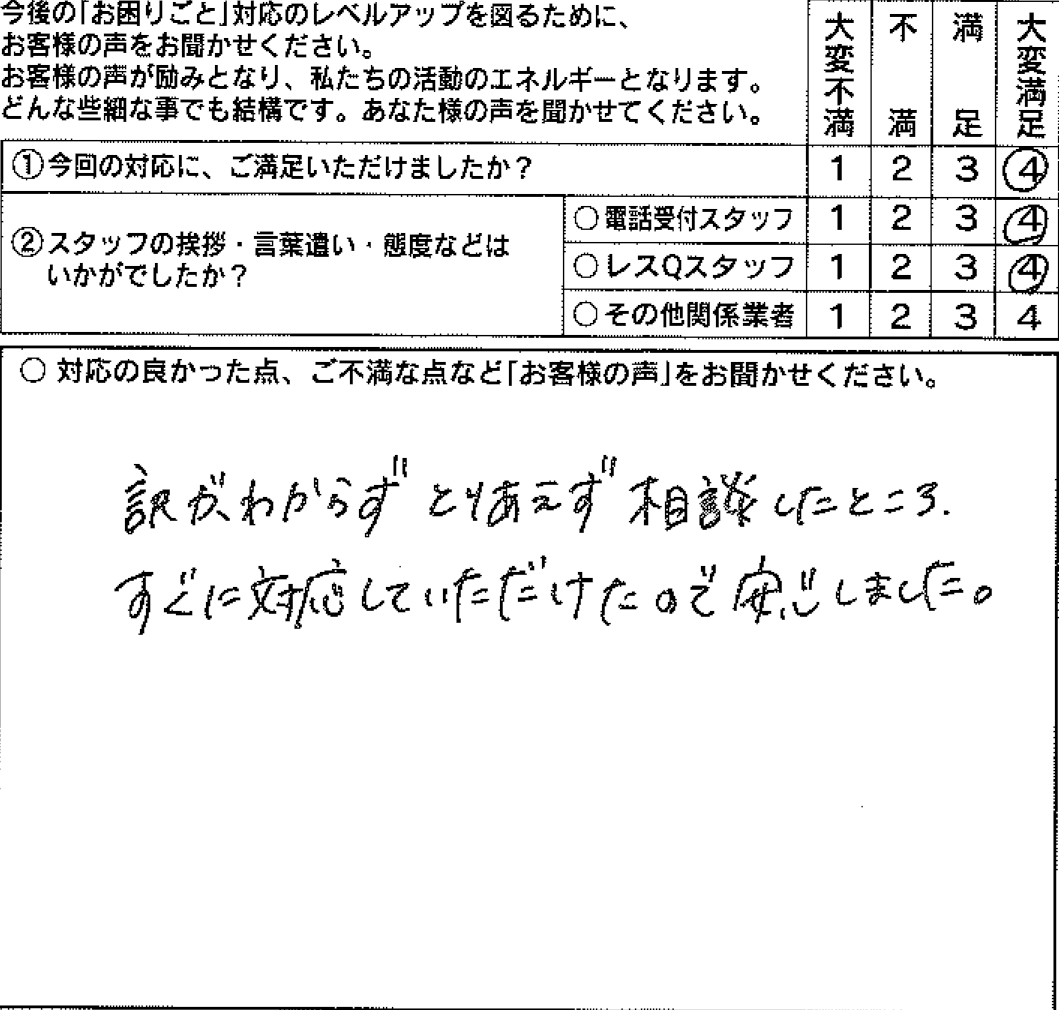 今後の「お困りごと」対応のレベルアップを図るために、
お客様の声をお聞かせください。
お客様の声が励みとなり、私たちの活動のエネルギーとなります。
どんな些細な事でも結構です。あなた様の声を聞かせてください。
大変不満 不満 満足 大変満足
①今回の対応に、ご満足いただけましたか？ 1 2 3 4
②スタッフの挨拶・言葉遣い・態度などは
いかがでしたか？
○電話受付スタッフ 1 2 3 4
○レスQスタッフ 1 2 3 4
○その他関係業者 1 2 3 4
○ 対応の良かった点、ご不満な点など「お客様の声」をお聞かせください。
訳がわからず とりあえず 相談したところ.
すぐに対応していただけたので安心しました。